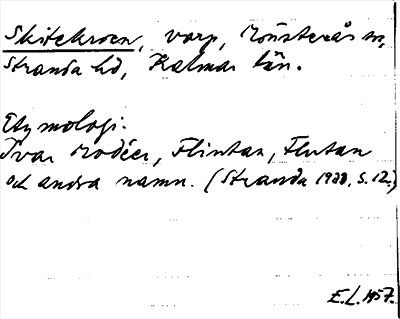 Skitekroen, varp, Mönsterås sn,
Stranda hd, Kalmar län.
Etymologi:
Ivar Modéer, Flintan, Flutan
och andra namn. (Stranda 1938, s. 12.)
E.L. 1957.